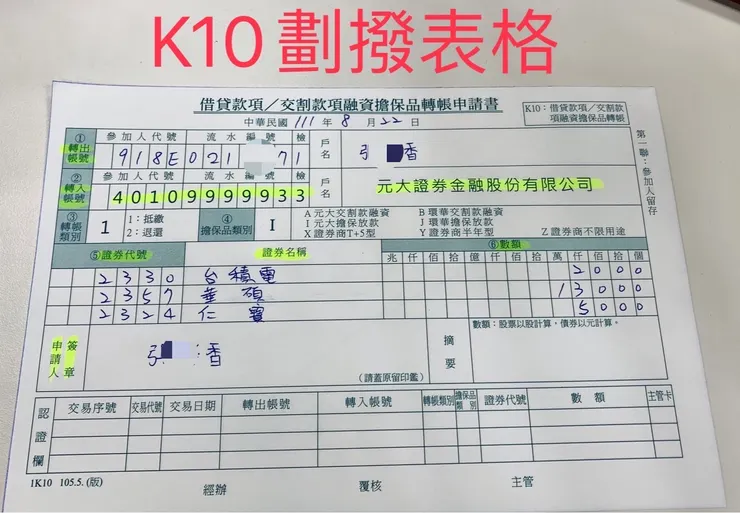 K10劃撥表格
借貸款項／交割款項融資擔保品轉帳申請書
K10：借貸款項／交割款項融資擔保品轉帳
中華民國 111 年 8 月 22 日
第一聯：參加人留存
① 轉出帳號
參加人代號 流水編號 檢
918E021 71
戶名 張 香
② 轉入帳號
參加人代號 流水編號 檢
40109999933
戶名 元大證券金融股份有限公司
③ 轉帳類別 1 1：抵繳 2：退還
④ 擔保品類別 I
A 元大交割款融資 B 環華交割款融資
I 元大擔保放款 J 環華擔保放款
X 證券商T+5型 Y 證券商半年型 Z 證券商不限用途
⑤證券代號 證券名稱 ⑥數額
兆 仟 佰 拾 億 仟 佰 拾 萬 仟 佰 拾 個
2330 台積電 2000
2357 華碩 13000
2324 仁寶 5000
數額：股票以股計算，債券以元計算。
申請人簽章
張 香
(請蓋原留印鑑)
摘要
認證欄
交易序號 交易代號 交易日期 轉出帳號 轉入帳號 轉帳類別 擔保品類別 證券代號 數額 主管卡
1K10 105.5.(版)
經辦 覆核 主管